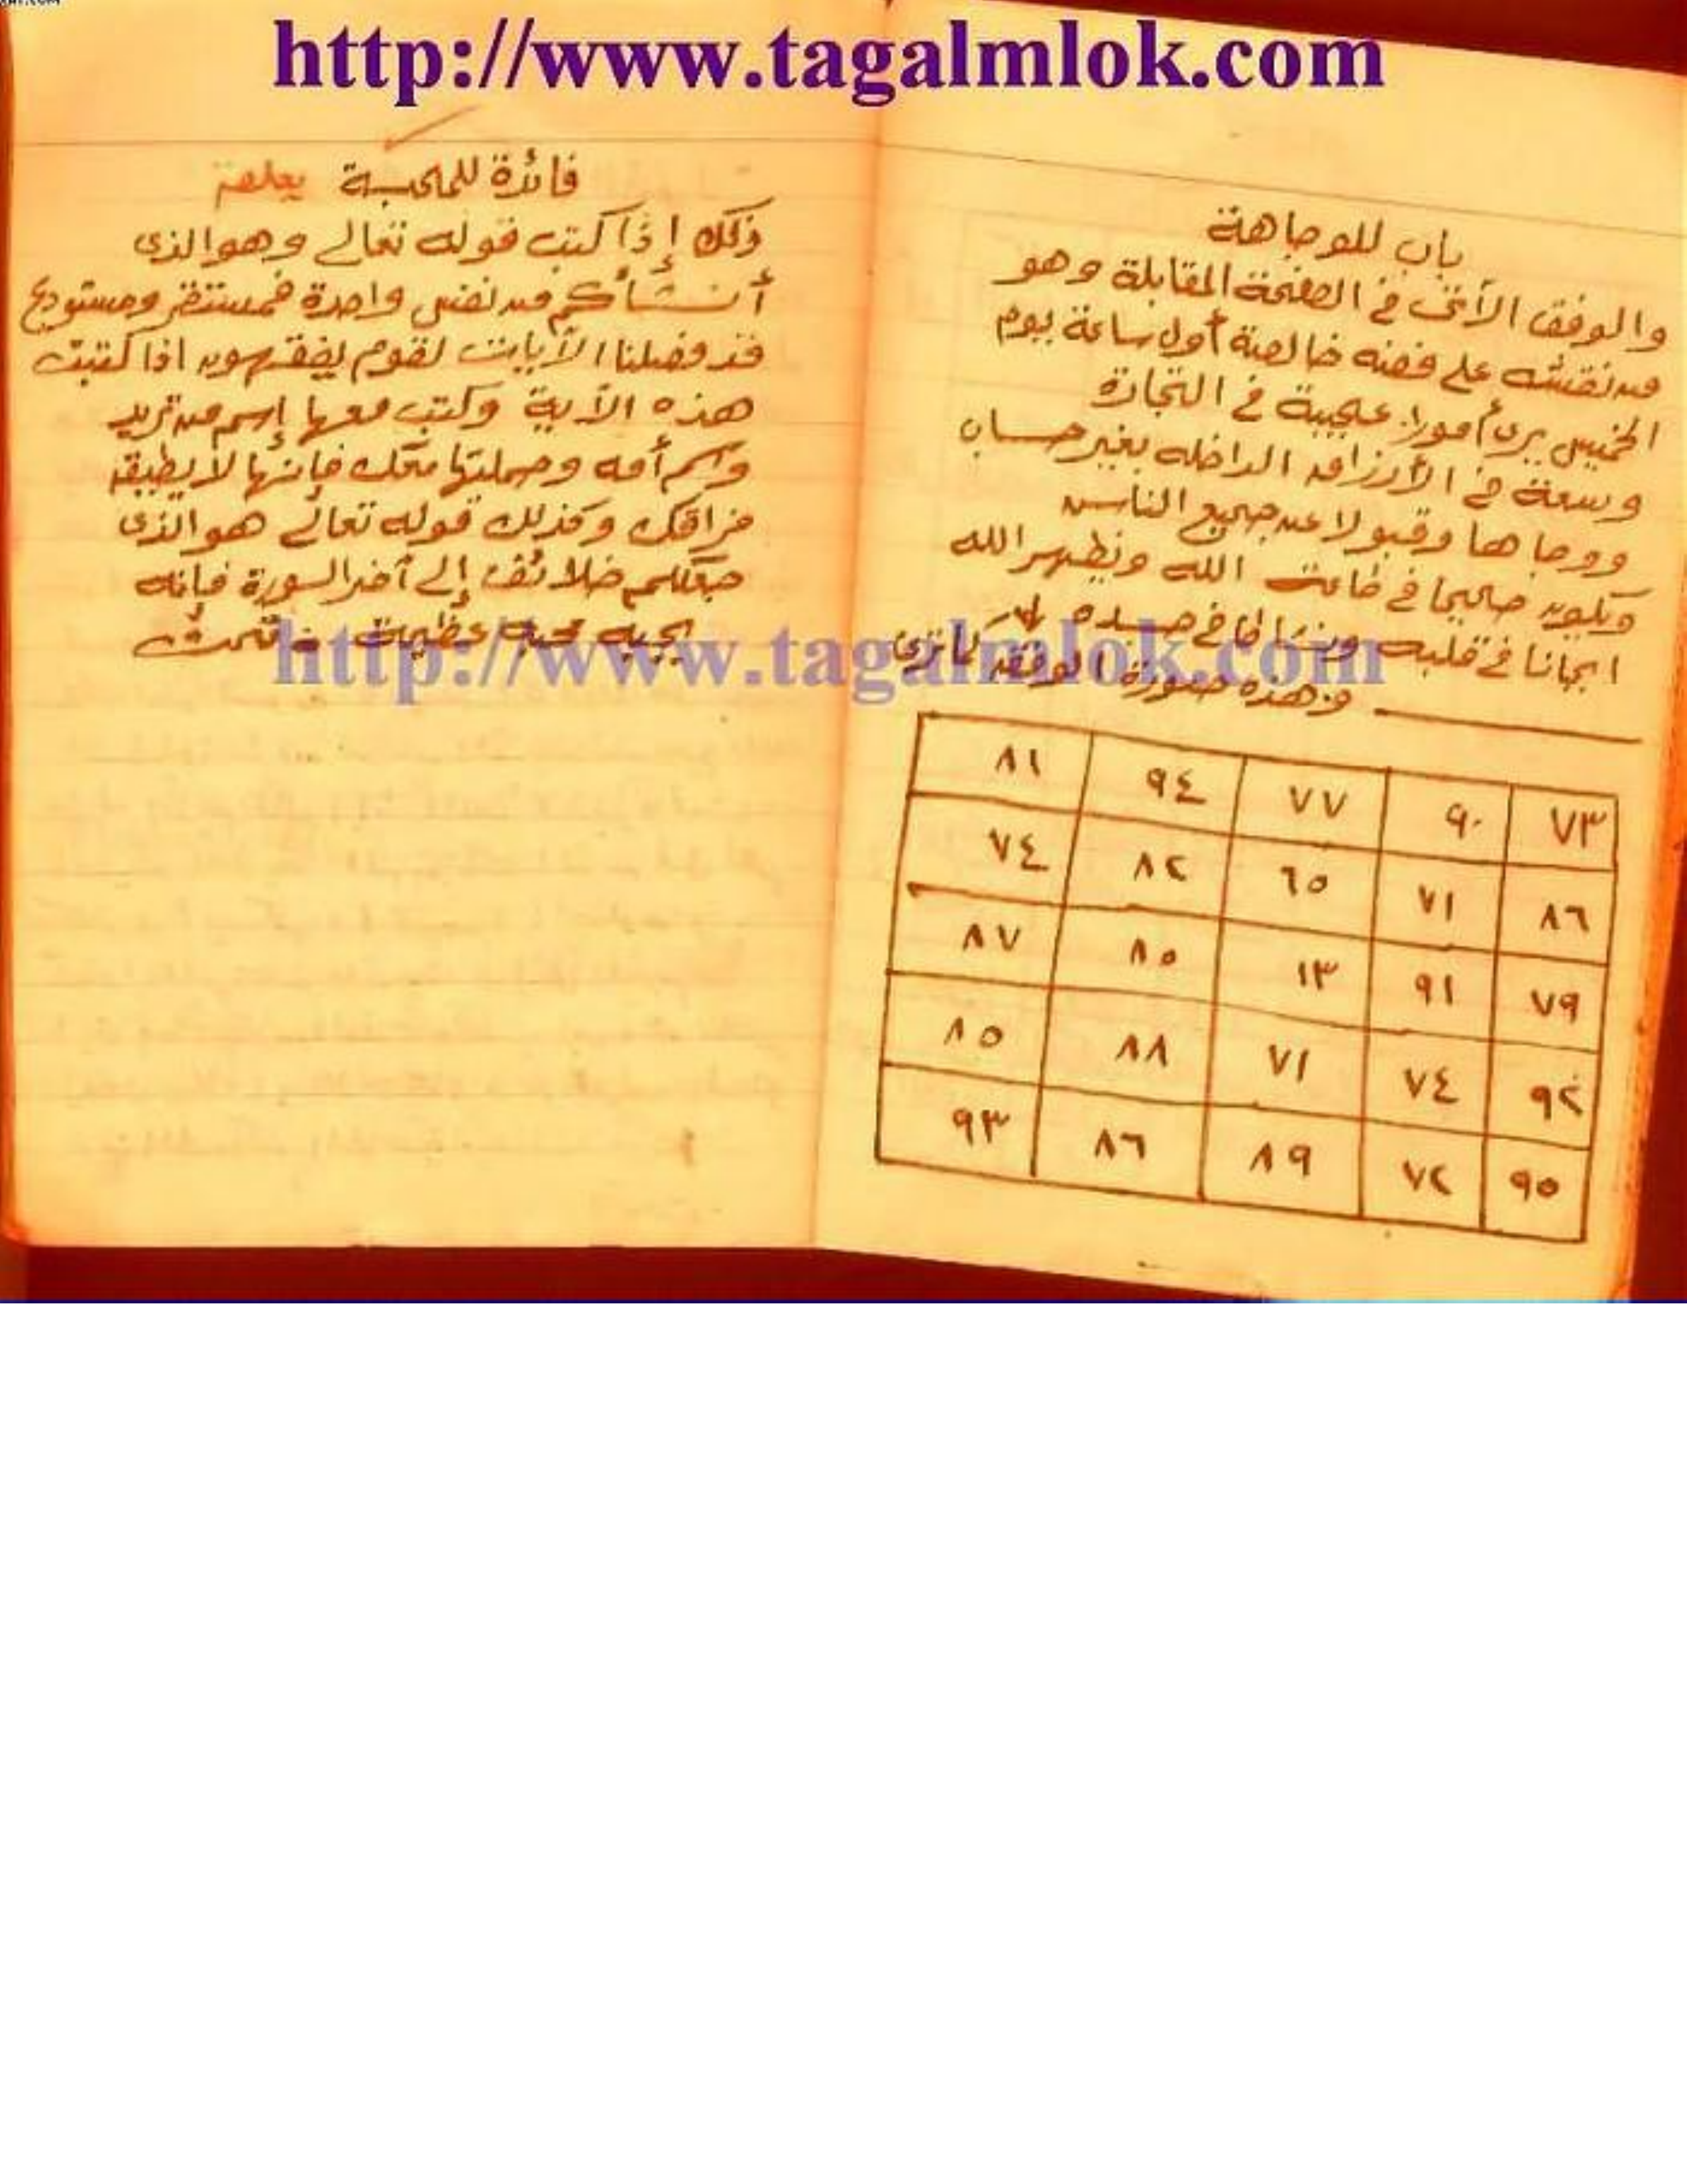 http://www.tagalmlok.com
باب للوجاهة
والوفق الآتى فى الصفحة المقابلة وهو
من نقشه على فضه خالصة أول ساعة يوم
الخميس يرى أمورا عجيبة فى التجارة
وسعة فى الأرزاق الداخله بغير حساب
ووجاها وقبولا عند جميع الناس
ويكون صالحا فى طاعت الله ويظهر الله
فى قلبه ونشاطا فى جسده
وهذه صورة الوفق كما ترى
٨١ ٩٤ ٧٧ ٩٠ ٧٣
٧٤ ٨٢ ٦٥ ٧١ ٨٦
٨٧ ٨٥ ١٣ ٩١ ٧٩
٨٥ ٨٨ ٧١ ٧٤ ٩٢
٩٣ ٨٦ ٨٩ ٧٢ ٩٥
فائدة للمحبة
وذلك إذا كتب قوله تعالى وهو الذى
أنشأكم من نفس واحدة فمستقر ومستودع
قد فصلنا الآيات لقوم يفقهون اذا كتبت
هذه الآية وكتب معها إسم من تريد
واسم أمه وحملتها معك فإنها لا يطيق
فراقك وكذلك قوله تعالى هو الذى
جعلكم خلائف إلى آخر السورة فإنه
يحبه محبة عظيمة تمت
http://www.tagalmlok.com